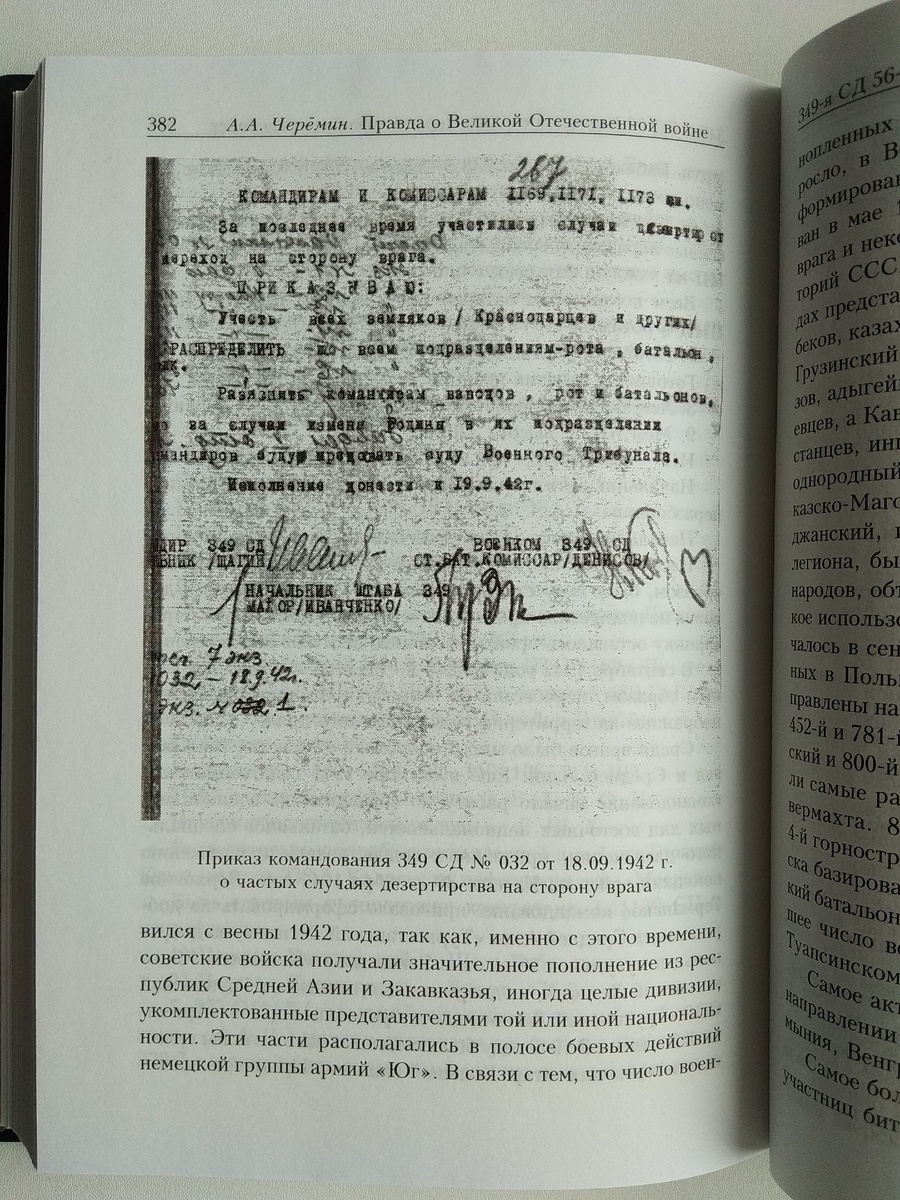 382 А.А. Черёмин. Правда о Великой Отечественной войне
267
КОМАНДИРАМ И КОМИССАРАМ 1169,1171, 1173 сп.
За последнее время участились случаи
переход на сторону врага.
ПРИКАЗЫВАЮ:
Учесть всех земляков / Краснодарцев и других/
РАСПРЕДЕЛИТЬ по всем подразделениям-рота , батальон,
Раз'яснить командирам взводов , рот и батальонов,
за случаи измены Родине в их подразделении
командиров буду предавать суду Военного Трибунала.
Исполнение донести к 19.9.42г.
ДИР 349 СД ВОЕНКОМ 349 СД
ВНИК /ШАГИН СТ.БАТ.КОМИССАР/ДЕНИСОВ/
НАЧАЛЬНИК ШТАБА 349
МАЙОР/ИВАНЧЕНКО/
7 экз
032 – 18.9.42г.
экз. 1.
Приказ командования 349 СД № 032 от 18.09.1942 г.
о частых случаях дезертирства на сторону врага
вился с весны 1942 года, так как, именно с этого времени,
советские войска получали значительное пополнение из рес-
публик Средней Азии и Закавказья, иногда целые дивизии,
укомплектованные представителями той или иной националь-
ности. Эти части располагались в полосе боевых действий
немецкой группы армий «Юг». В связи с тем, что число воен-
349-я СД 56-
нопленных
росло, в В
формирова
ван в мае 1
врага и неко
торий ССС
дах предста
беков, казах
Грузинский
зов, адыгей
евцев, а Кав
станцев, инг
однородный
казско-Маго
джанский,
легиона, бы
народов, объ
кое использо
чалось в сен
ных в Поль
правлены на
452-й и 781-й
ский и 800-й
ли самые ра
вермахта. 8
4-й горностр
ска базирова
кий батальон
шее число во
Туапсинском
Самое акт
направлении
мыния, Венгр
Самое бол
участниц бит